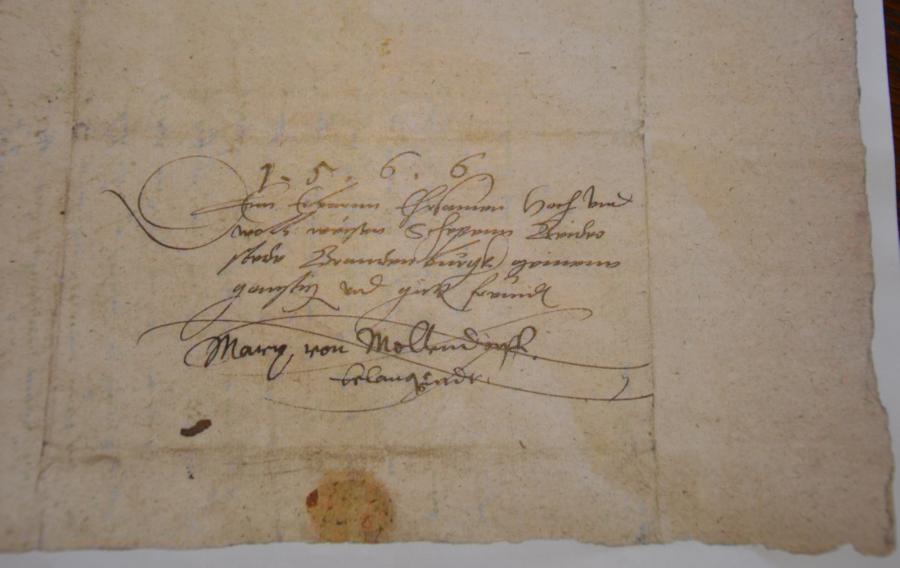 1.5.6.6.
Den Erbarnn Ersamen Hoch und
woll weisen Scheppenn Beider
stede Brandenburgk meinenn
gonstig und gutt freundt
Marg. von Mollendorff.
belangende.